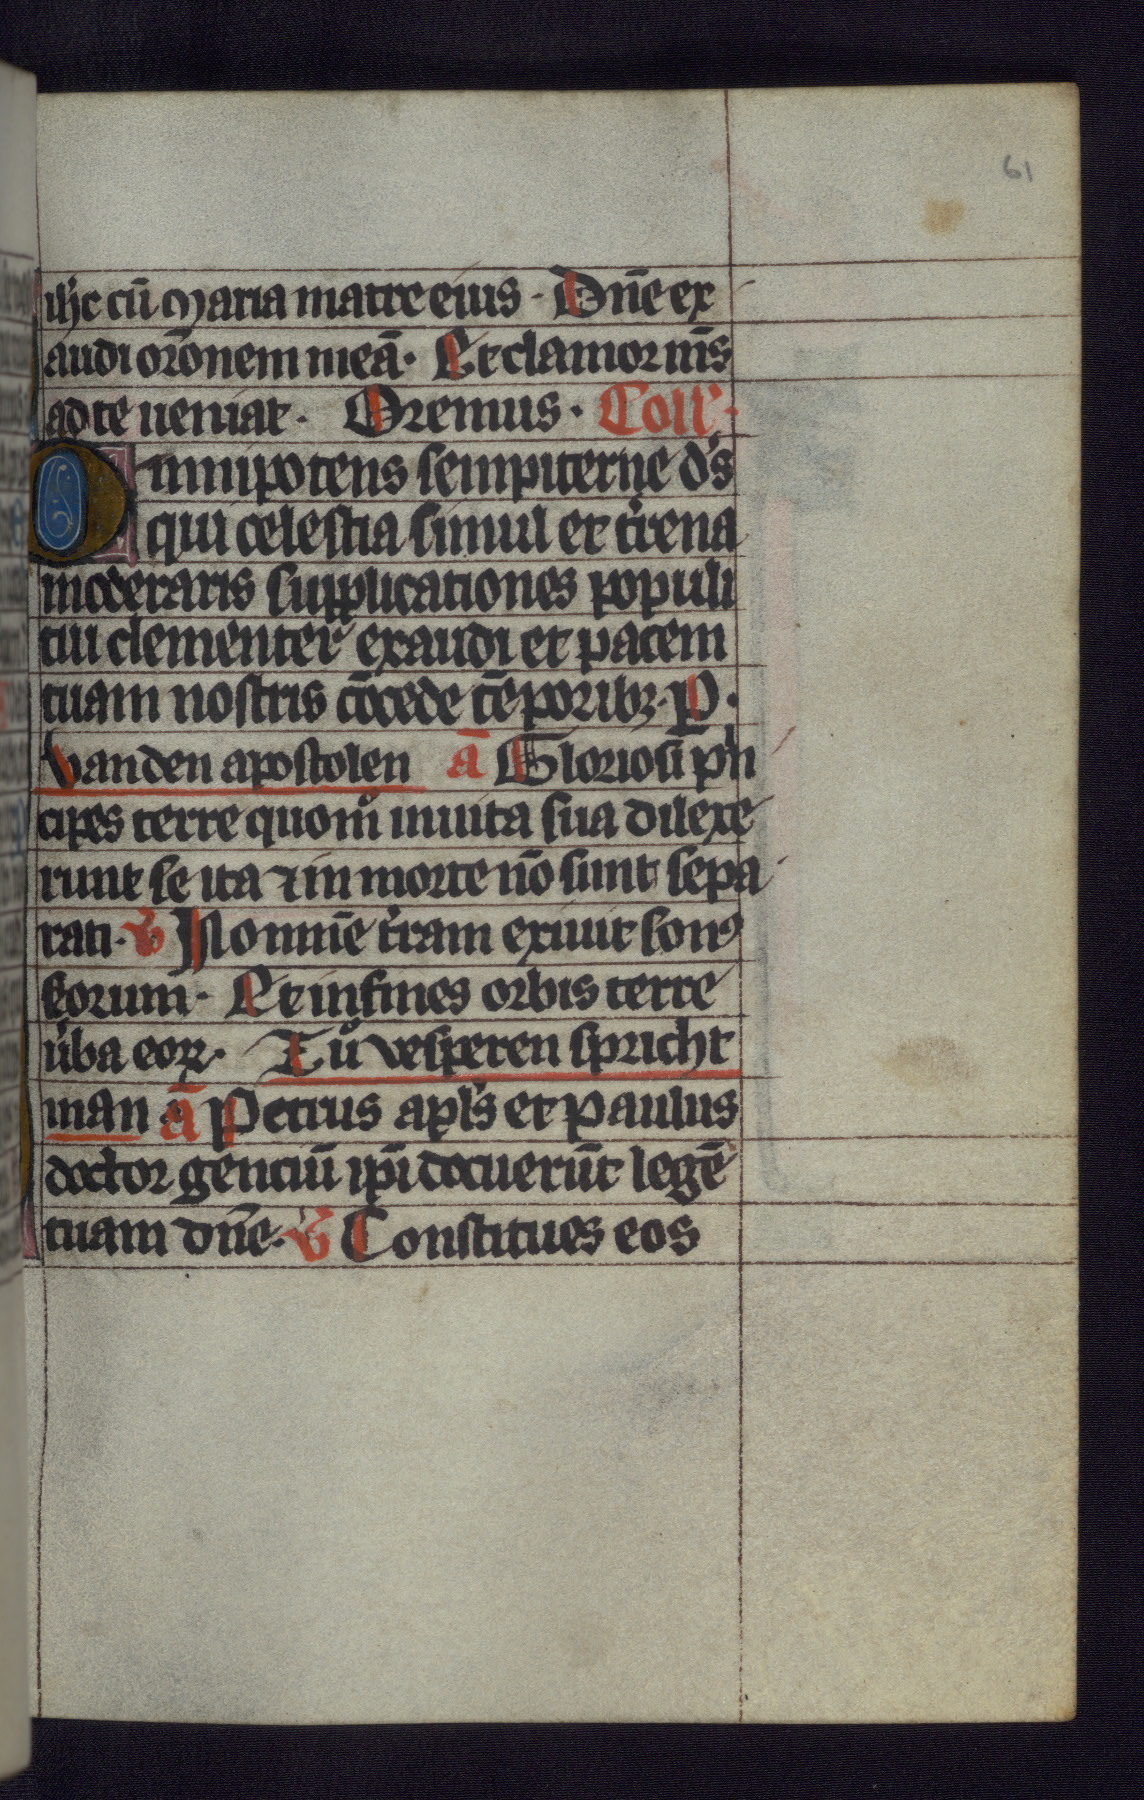 61
ih̄c cū maria matre eius · Dn̄e ex
audi or̄onem meā · Et clamor m̄s
ad te ueniat · Oremus · Coll'·
Omnipotens sempiterne d's
qui celestia simul et t'rena
moderaris supplicationes populi
tui clementer exaudi et pacem
tuam nostris cōcede tēporibꝫ · P ·
Vanden apostolen ā Gloriosi pͥn
cipes terre quomͦ inuita sua dilexe
runt se ita ⁊ in morte nō sunt sepa
rati · V̄ In omnē t'ram exiuit sonꝰ
eorum · Et in fines orbis terre
u'ba eoꝝ · Tuͦ vesperen spricht
man ā Petrus apl's et Paulus
doctor genciū ip̄i docuerūt legē
tuam dn̄e · V̄ Constitues eos